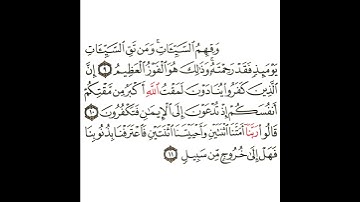 وَقِهِمُ ٱلسَّيِّـَٔاتِۚ وَمَن تَقِ ٱلسَّيِّـَٔاتِ
يَوْمَئِذٍ فَقَدْ رَحِمْتَهُۥۚ وَذَٰلِكَ هُوَ ٱلْفَوْزُ ٱلْعَظِيمُ ٩ إِنَّ
ٱلَّذِينَ كَفَرُوا۟ يُنَادَوْنَ لَمَقْتُ ٱللَّهِ أَكْبَرُ مِن مَّقْتِكُمْ
أَنفُسَكُمْ إِذْ تُدْعَوْنَ إِلَى ٱلْإِيمَٰنِ فَتَكْفُرُونَ ١٠
قَالُوا۟ رَبَّنَآ أَمَتَّنَا ٱثْنَتَيْنِ وَأَحْيَيْتَنَا ٱثْنَتَيْنِ فَٱعْتَرَفْنَا بِذُنُوبِنَا
فَهَلْ إِلَىٰ خُرُوجٍ مِّن سَبِيلٍ ١١